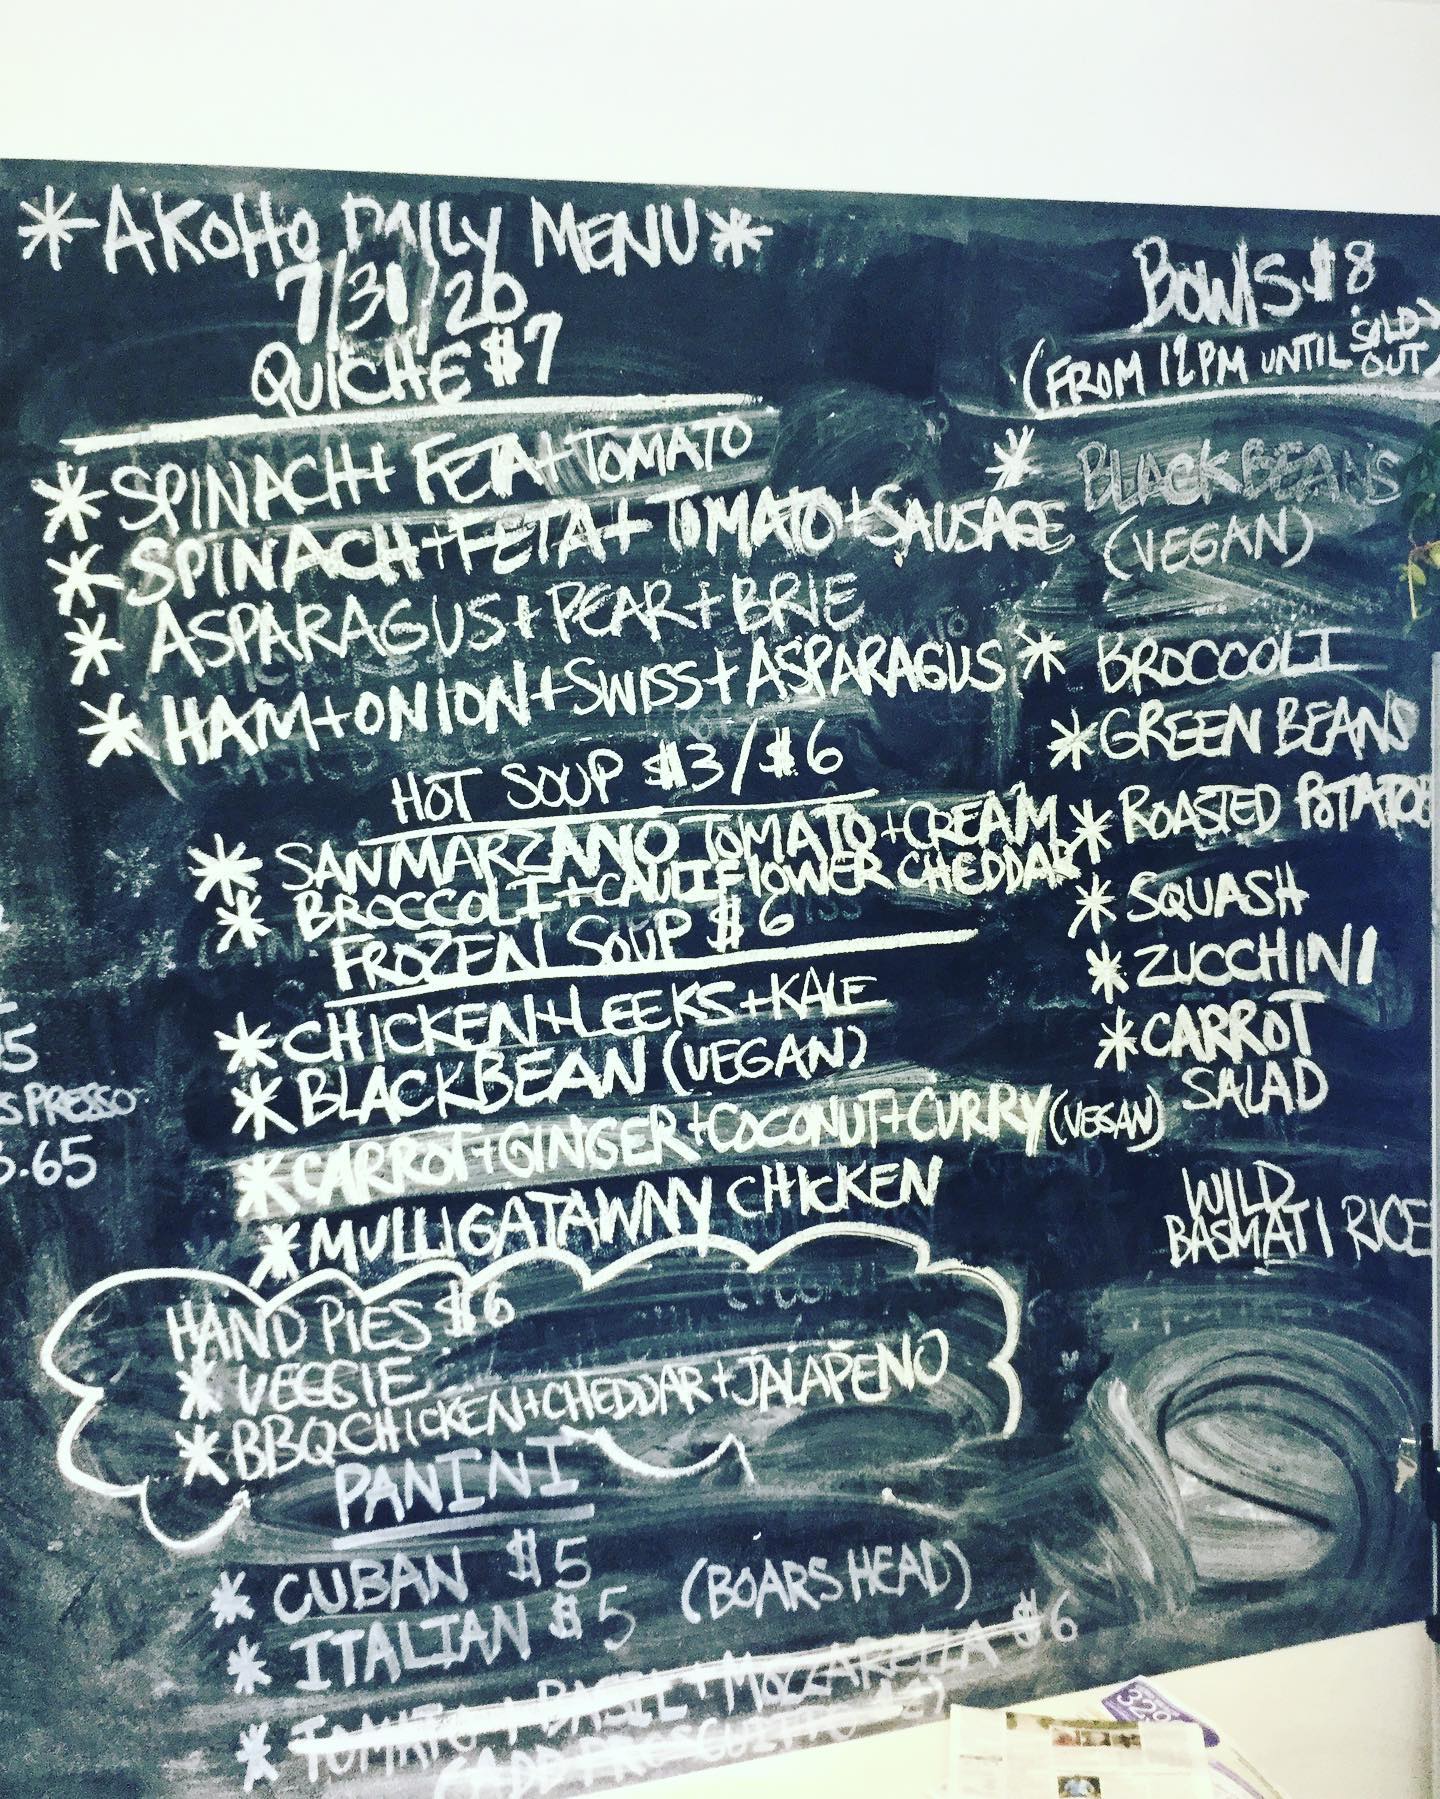 *AKOHO DAILY MENU*
7/31/20
QUICHE $7
* SPINACH + FETA + TOMATO
* SPINACH + FETA + TOMATO + SAUSAGE
* ASPARAGUS + PEAR + BRIE
* HAM + ONION + SWISS + ASPARAGUS
HOT SOUP $3/$6
* SAN MARZANO TOMATO + CREAM
* BROCCOLI + CAULIFLOWER CHEDDAR
FROZEN SOUP $6
* CHICKEN + LEEKS + KALE
* BLACK BEAN (VEGAN)
* CARROT + GINGER + COCONUT + CURRY (VEGAN)
* MULLIGATAWNY CHICKEN
HAND PIES $6
* VEGGIE
* BBQ CHICKEN + CHEDDAR + JALAPEÑO
PANINI
* CUBAN $5
* ITALIAN $5 (BOARS HEAD)
* TOMATO + BASIL + MOZZARELLA $6
(ADD PROSCUITTO
BOWLS $8
(FROM 12PM UNTIL SOLD OUT)
* BLACK BEANS
(VEGAN)
* BROCCOLI
* GREEN BEANS
* ROASTED POTATOE
* SQUASH
* ZUCCHINI
* CARROT
SALAD
WILD
BASMATI RICE
5
SPRESSO
.65
329